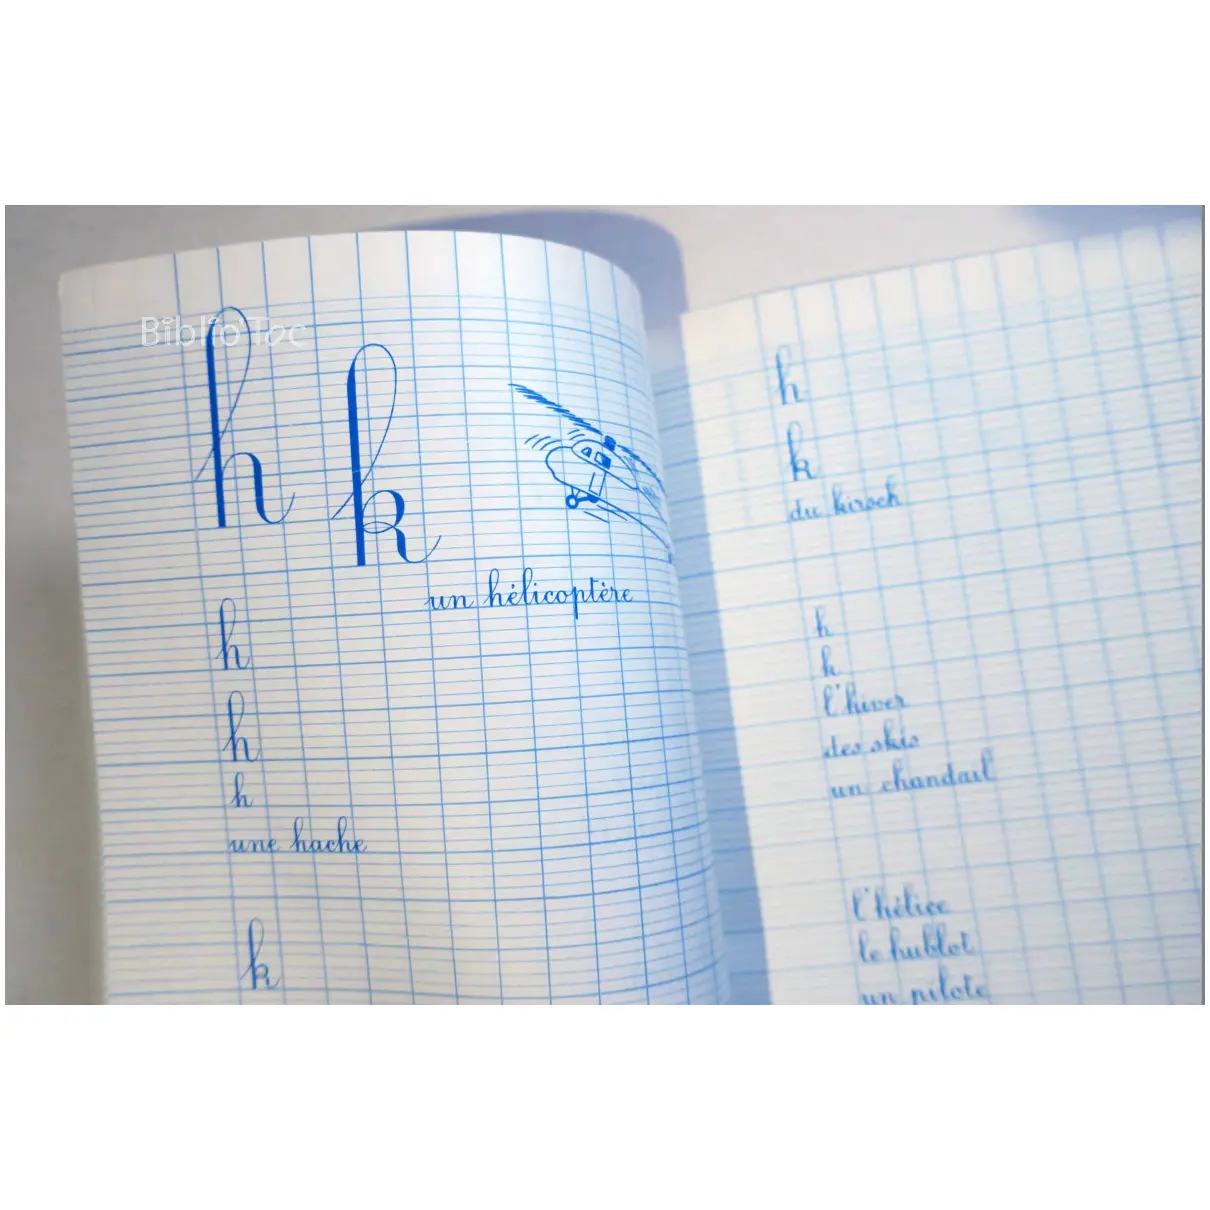 Biblio Toc
h k
un hélicoptère
h
h
h
une hache
k
h
k
du kirsch
h
k
l'hiver
des skis
un chandail
l'hélice
le hublot
un pilote